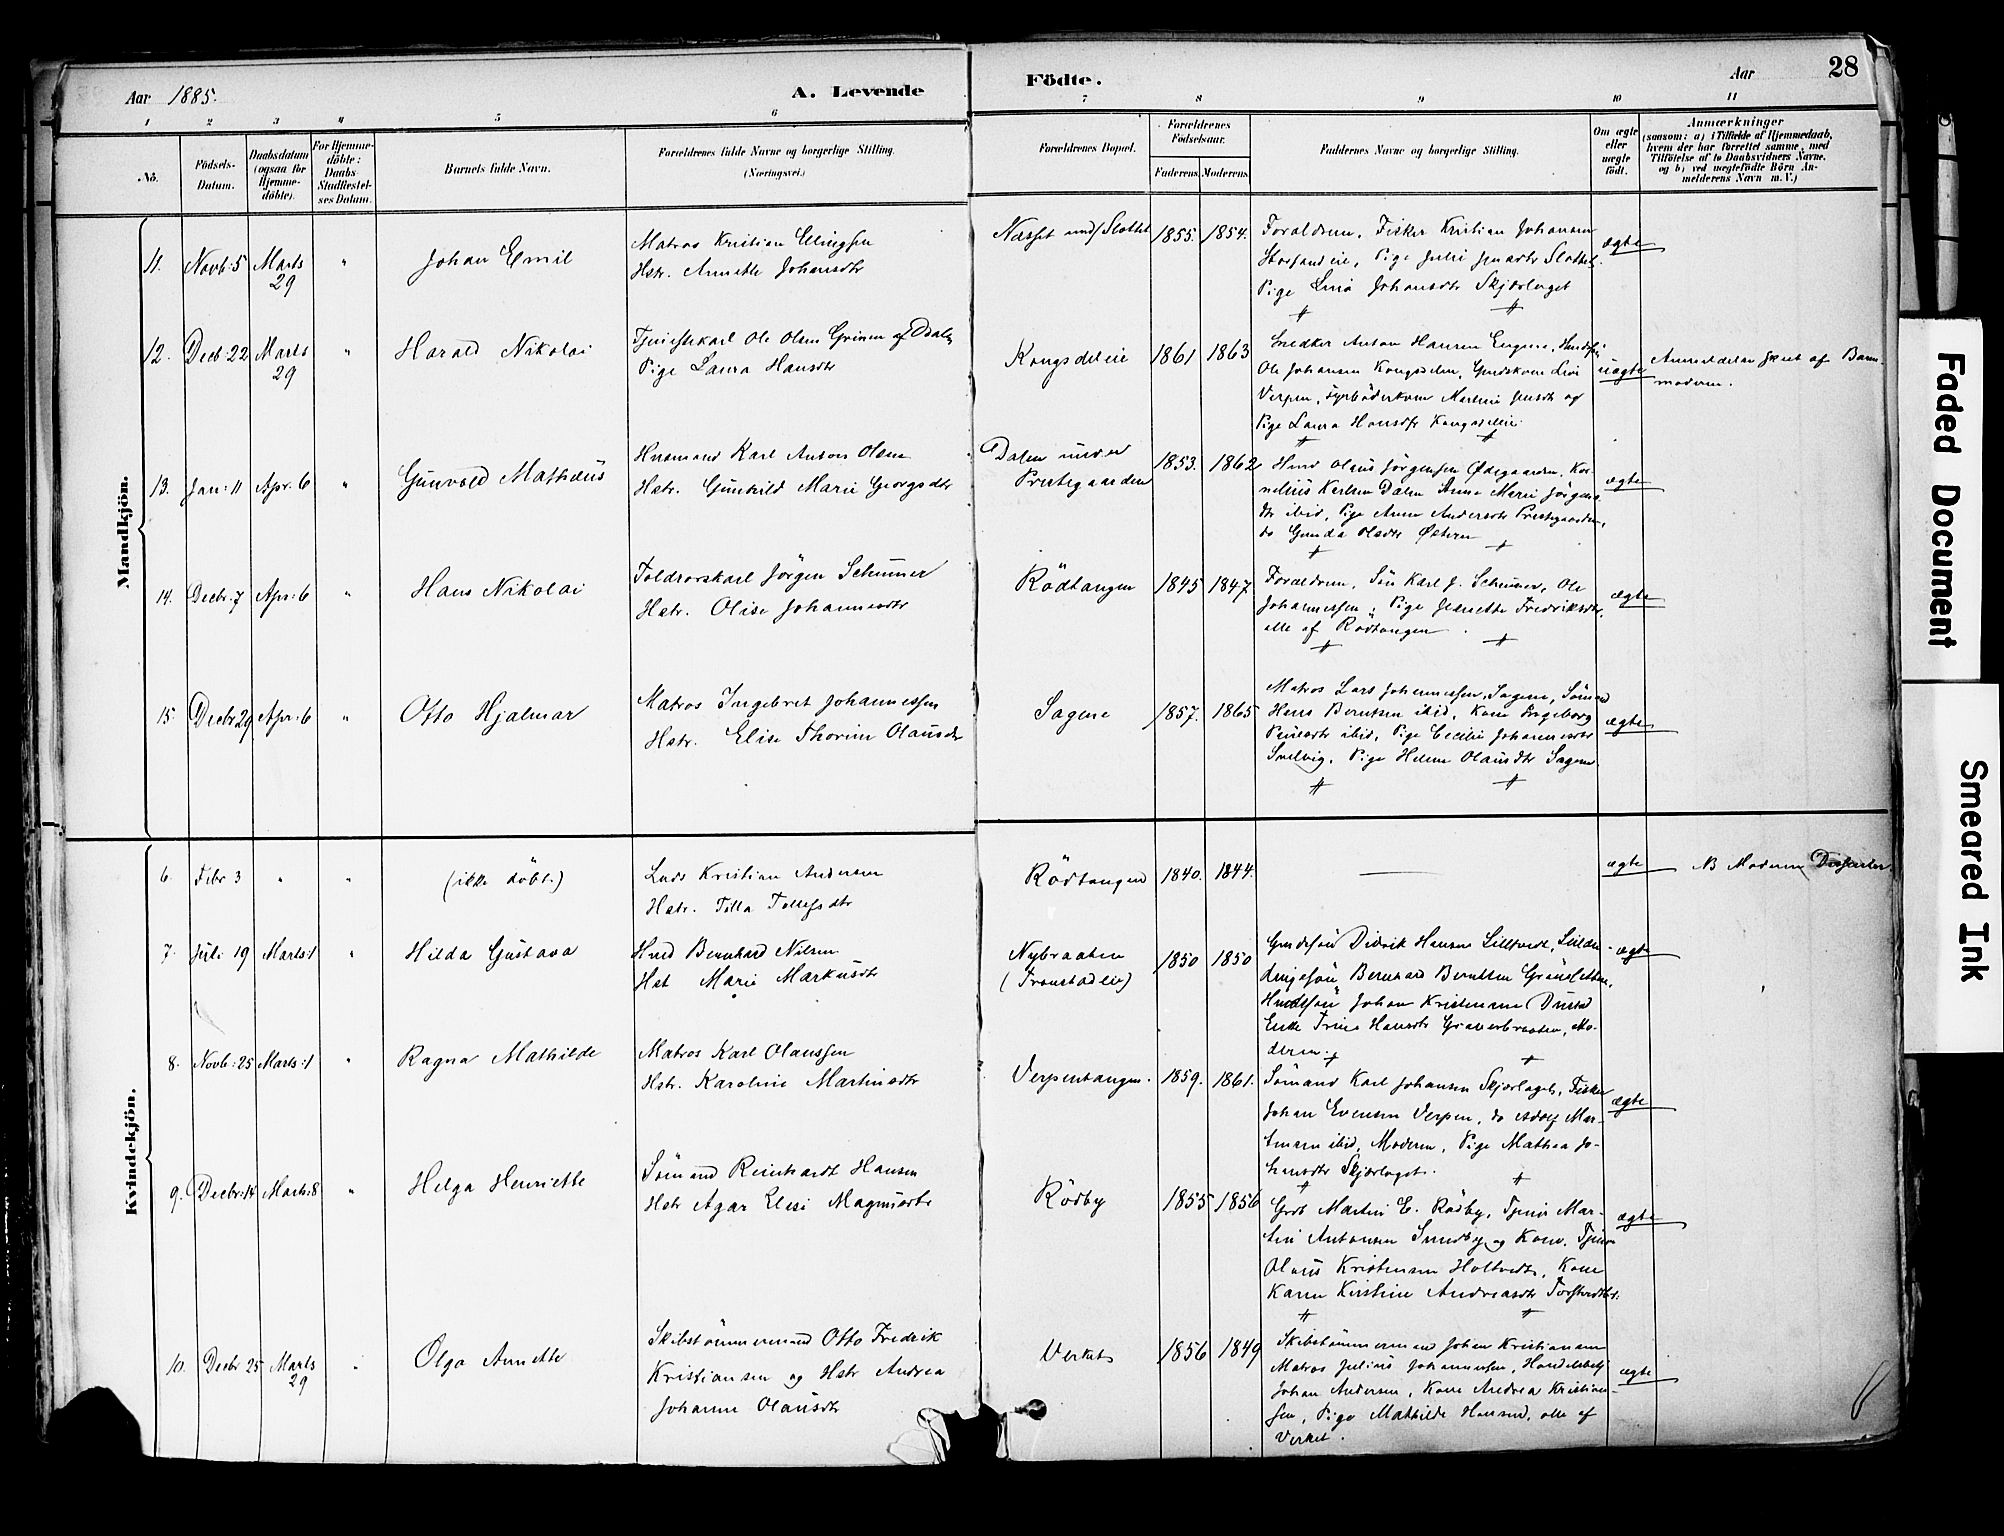 28
Aar 1885.
A. Levende
Födte.
Aar
1 2 3 4 5 6 7 8 9 10 11
No.
Födsels-
Datum.
Daabsdatum
(ogsaa for
Hjemme-
döbte).
For Hjemme-
döbte:
Daabs-
Stadfæstel-
ses Datum.
Barnets fulde Navn.
Forældrenes fulde Navne og borgerlige Stilling.
(Næringsvei.)
Forældrenes Bopæl.
Forældrenes
Födselsaar.
Faderens. Moderens.
Faddernes Navne og borgerlige Stilling.
Om ægte
eller
uægte
födt.
Anmærkninger
(saasom: a) i Tilfælde af Hjemmedaab,
hvem der har forrettet samme, med
Tilföielse af to Daabsvidners Navne,
og b) ved uægtefödte Börn An-
melderens Navn m. V.)
Mandkjön.
11. Novb: 5 Marts
29
"
Johan Emil
Matros Kristian Ellingsen
Hstr. Annette Johansdtr
Næsset und/ Slottet
1855. 1854.
Forældrene, Fisker Kristian Johansen
Storsandeie, Pige Julie Jensdtr Slottet,
Pige Lina Johansdtr Skjærlaget
ægte
12. Decb: 22 Marts
29
"
Harald Nikolai
Tjenestekarl Ole Olsen Grimm af Dale
Pige Laura Hansdtr
Kongsdeleie
1861 1863
Snedker Anton Hansen Engene,
Ole Johansen Kongsdelen, Gmdskone Lise
Verpen, Fyrböderkone Martine Jensdtr og
Pige Laura Hansdtr Kongsdeleie.
uægte
Anmeldelse skeet af Barne-
moderen.
13. Jan: 11 Apr: 6
"
Gunvald Mathæus
Husmand Karl Anton Olsen
Hstr. Gunhild Marie Georgsdtr
Dalen under
Prestegaarden
1853. 1862
Hmd Olaus Jörgensen Ödegaarden, Kor-
nelius Karlsen Dalen Anne Marie Jörgens-
dtr ibid, Pige Anne Andersdtr Prestegaarden,
do Gunda Olsdtr Östern
ægte
14. Decbr: 7 Apr: 6
"
Hans Nikolai
Toldrorskarl Jörgen Schumer
Hstr. Olise Johannesdtr
Rödtangen
1845 1847
Forældrene, Sön Karl J. Schumer, Ole
Johannessen, Pige Jeanette Fredriksdtr,
alle af Rödtangen
ægte
15. Decbr 29 Apr: 6
"
Otto Hjalmar
Matros Ingebret Johannessen
Hstr. Elise Thorine Olausdtr
Sagene
1857. 1865
Matros Lars Johannessen, Sagene, Sömand
Hans Berntsen ibid, Kone Ingeborg
Paulsdtr ibid, Pige Cecilie Johannesdtr
Svelvig, Pige Helene Olausdtr Sagene.
ægte
Kvindekjön.
6. Febr 3
" "
(ikke döbt.)
Lods Kristian Andersen
Hstr. Tilla Tollefsdtr
Rödtangen
1840. 1844.
ægte
NB Moderen Dissenter
7. Juli 19 Marts: 1
"
Hilda Gustava
Hmd Bernhard Nilsen
Hst Marie Markusdtr
Nybraaten
(Tronstadeie)
1850 1850
Gmdesön Didrik Hansen Silltvedt, Selden-
dringesön Bernhard Berntsen Grönsletten,
Hmdssön Johan Kristensen Dusta
Enke Trine Hansdtr Graverbraaten, Mo-
deren.
ægte
8. Novb: 25 Marts: 1
"
Ragna Mathilde
Matros Karl Olaussen
Hstr. Karoline Martinsdtr
Verpentangen.
1859. 1861.
Sömand Karl Johansen Skjærlaget, Fisker
Johan Evensen Verpen, do Adolf Mar-
tinsen ibid, Moderen, Pige Mathea Jo-
hansdtr Skjærlaget.
ægte
9. Decbr: 14 Marts: 8
"
Helga Henriette
Sömand Reinhardt Hansen
Hstr Agar Elise Magnusdtr
Rödby
1855 1856
Grdb Martin E. Rödby, Tjener Mar-
tin Antonsen Sundby og Kone, Tjener
Olaus Kristensen Holtvedt, Kone
Karen Kirstine Andreasdtr Torstvedt.
ægte
10. Decbr 25 Marts
29
"
Olga Annette
Skibstömmermand Otto Fredrik
Kristiansen og Hstr Andrea
Johanne Olausdtr
Verket
1856 1849
Skibstömmermand Johan Kristiansen
Matros Julius Johannessen, Handelsbetj
Johan Andersen, Kone Andrea Kristian-
sen, Pige Mathilde Hansen, alle af
Verket.
ægte
Faded Document
Smeared Ink